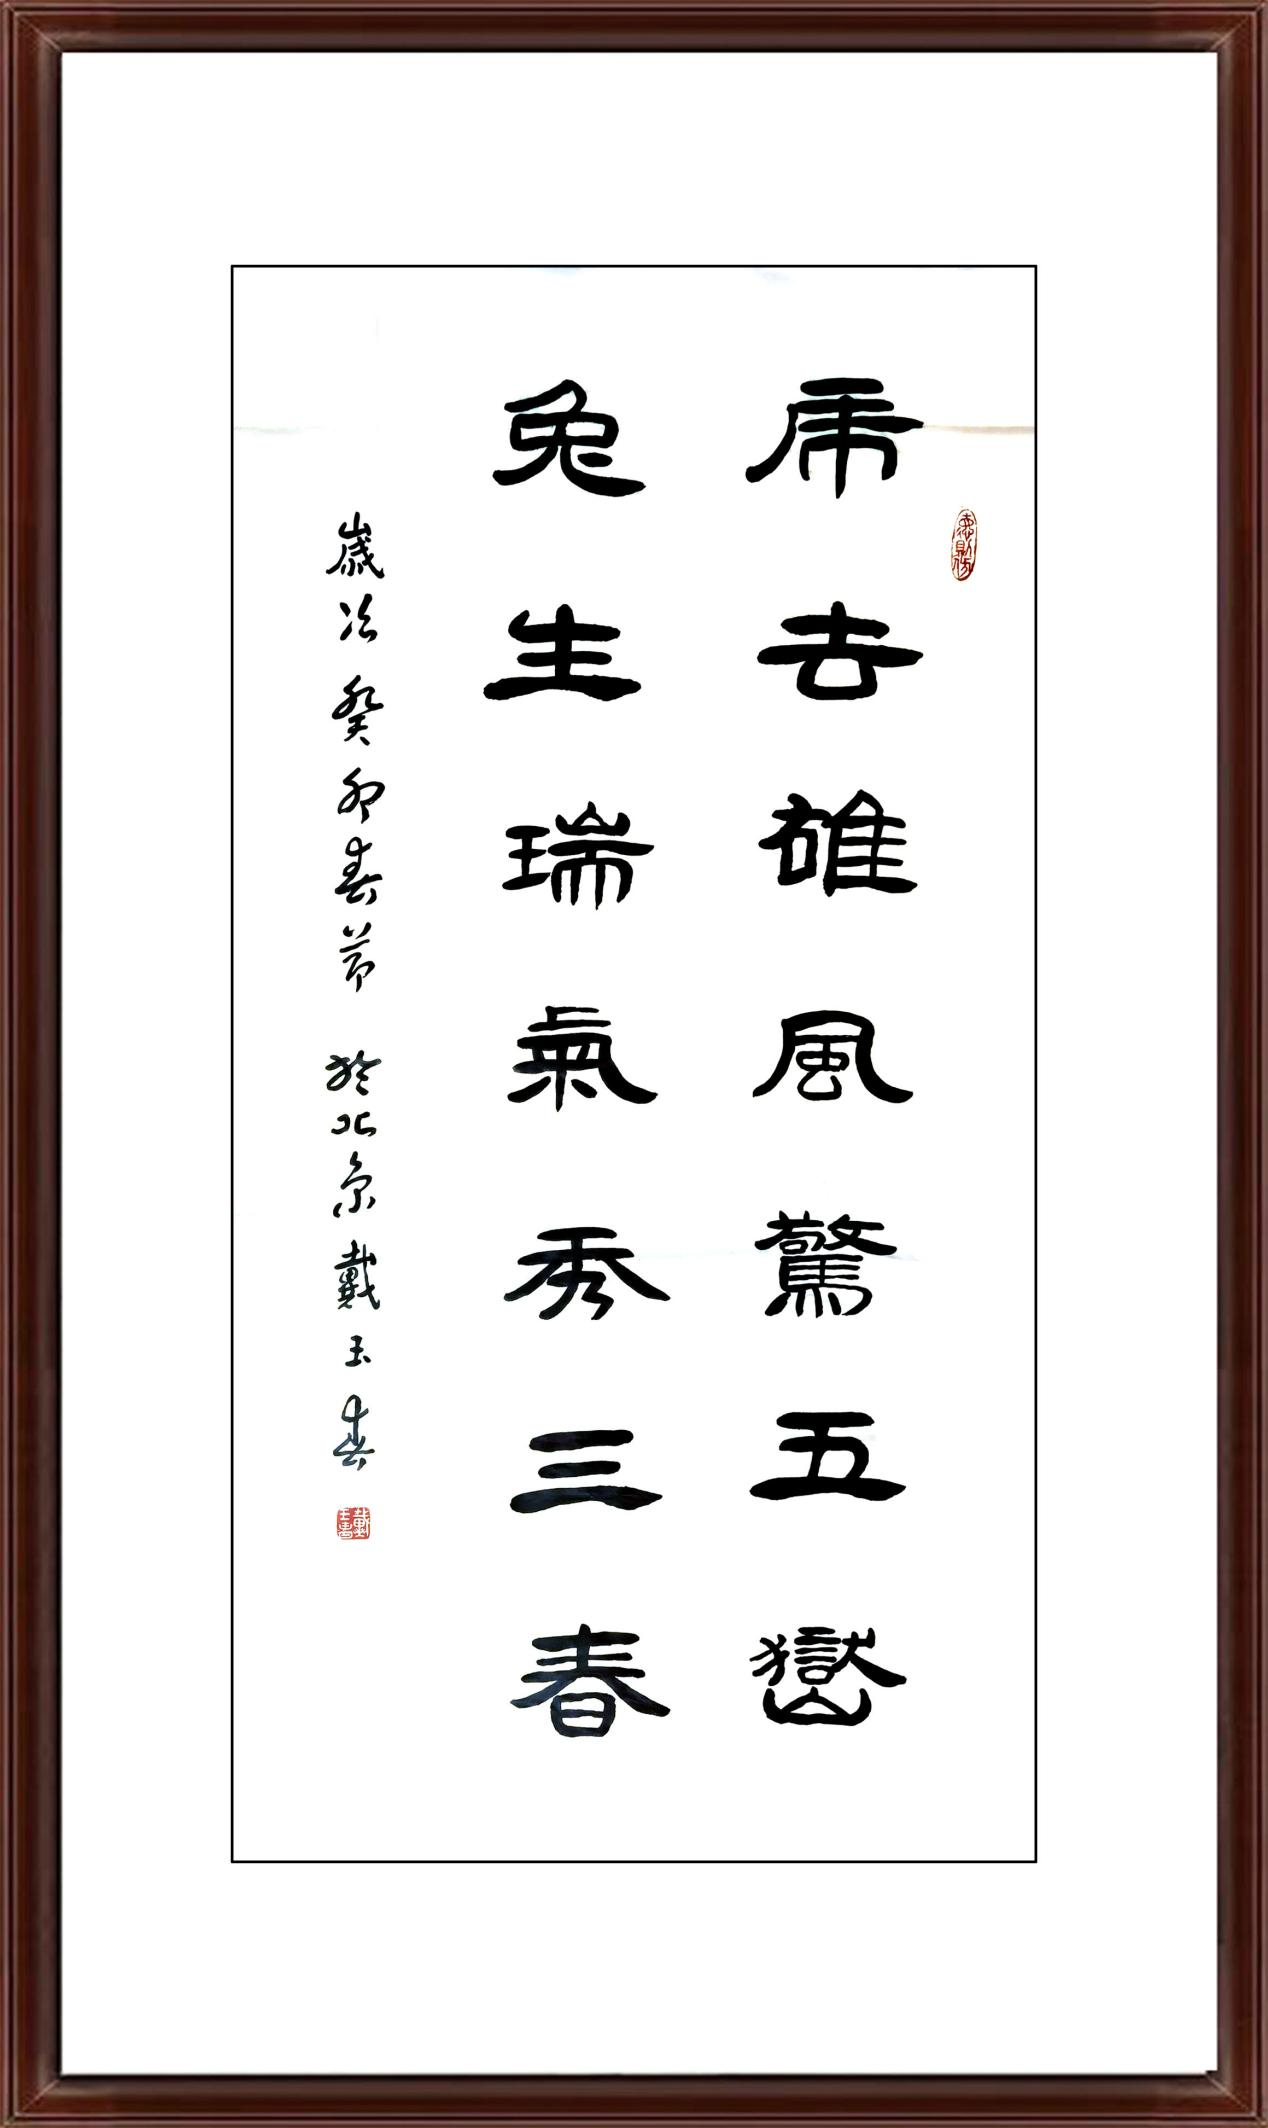 虎去雄風驚五嶽
兔生瑞氣秀三春
歲次癸卯春節於北京戴玉春